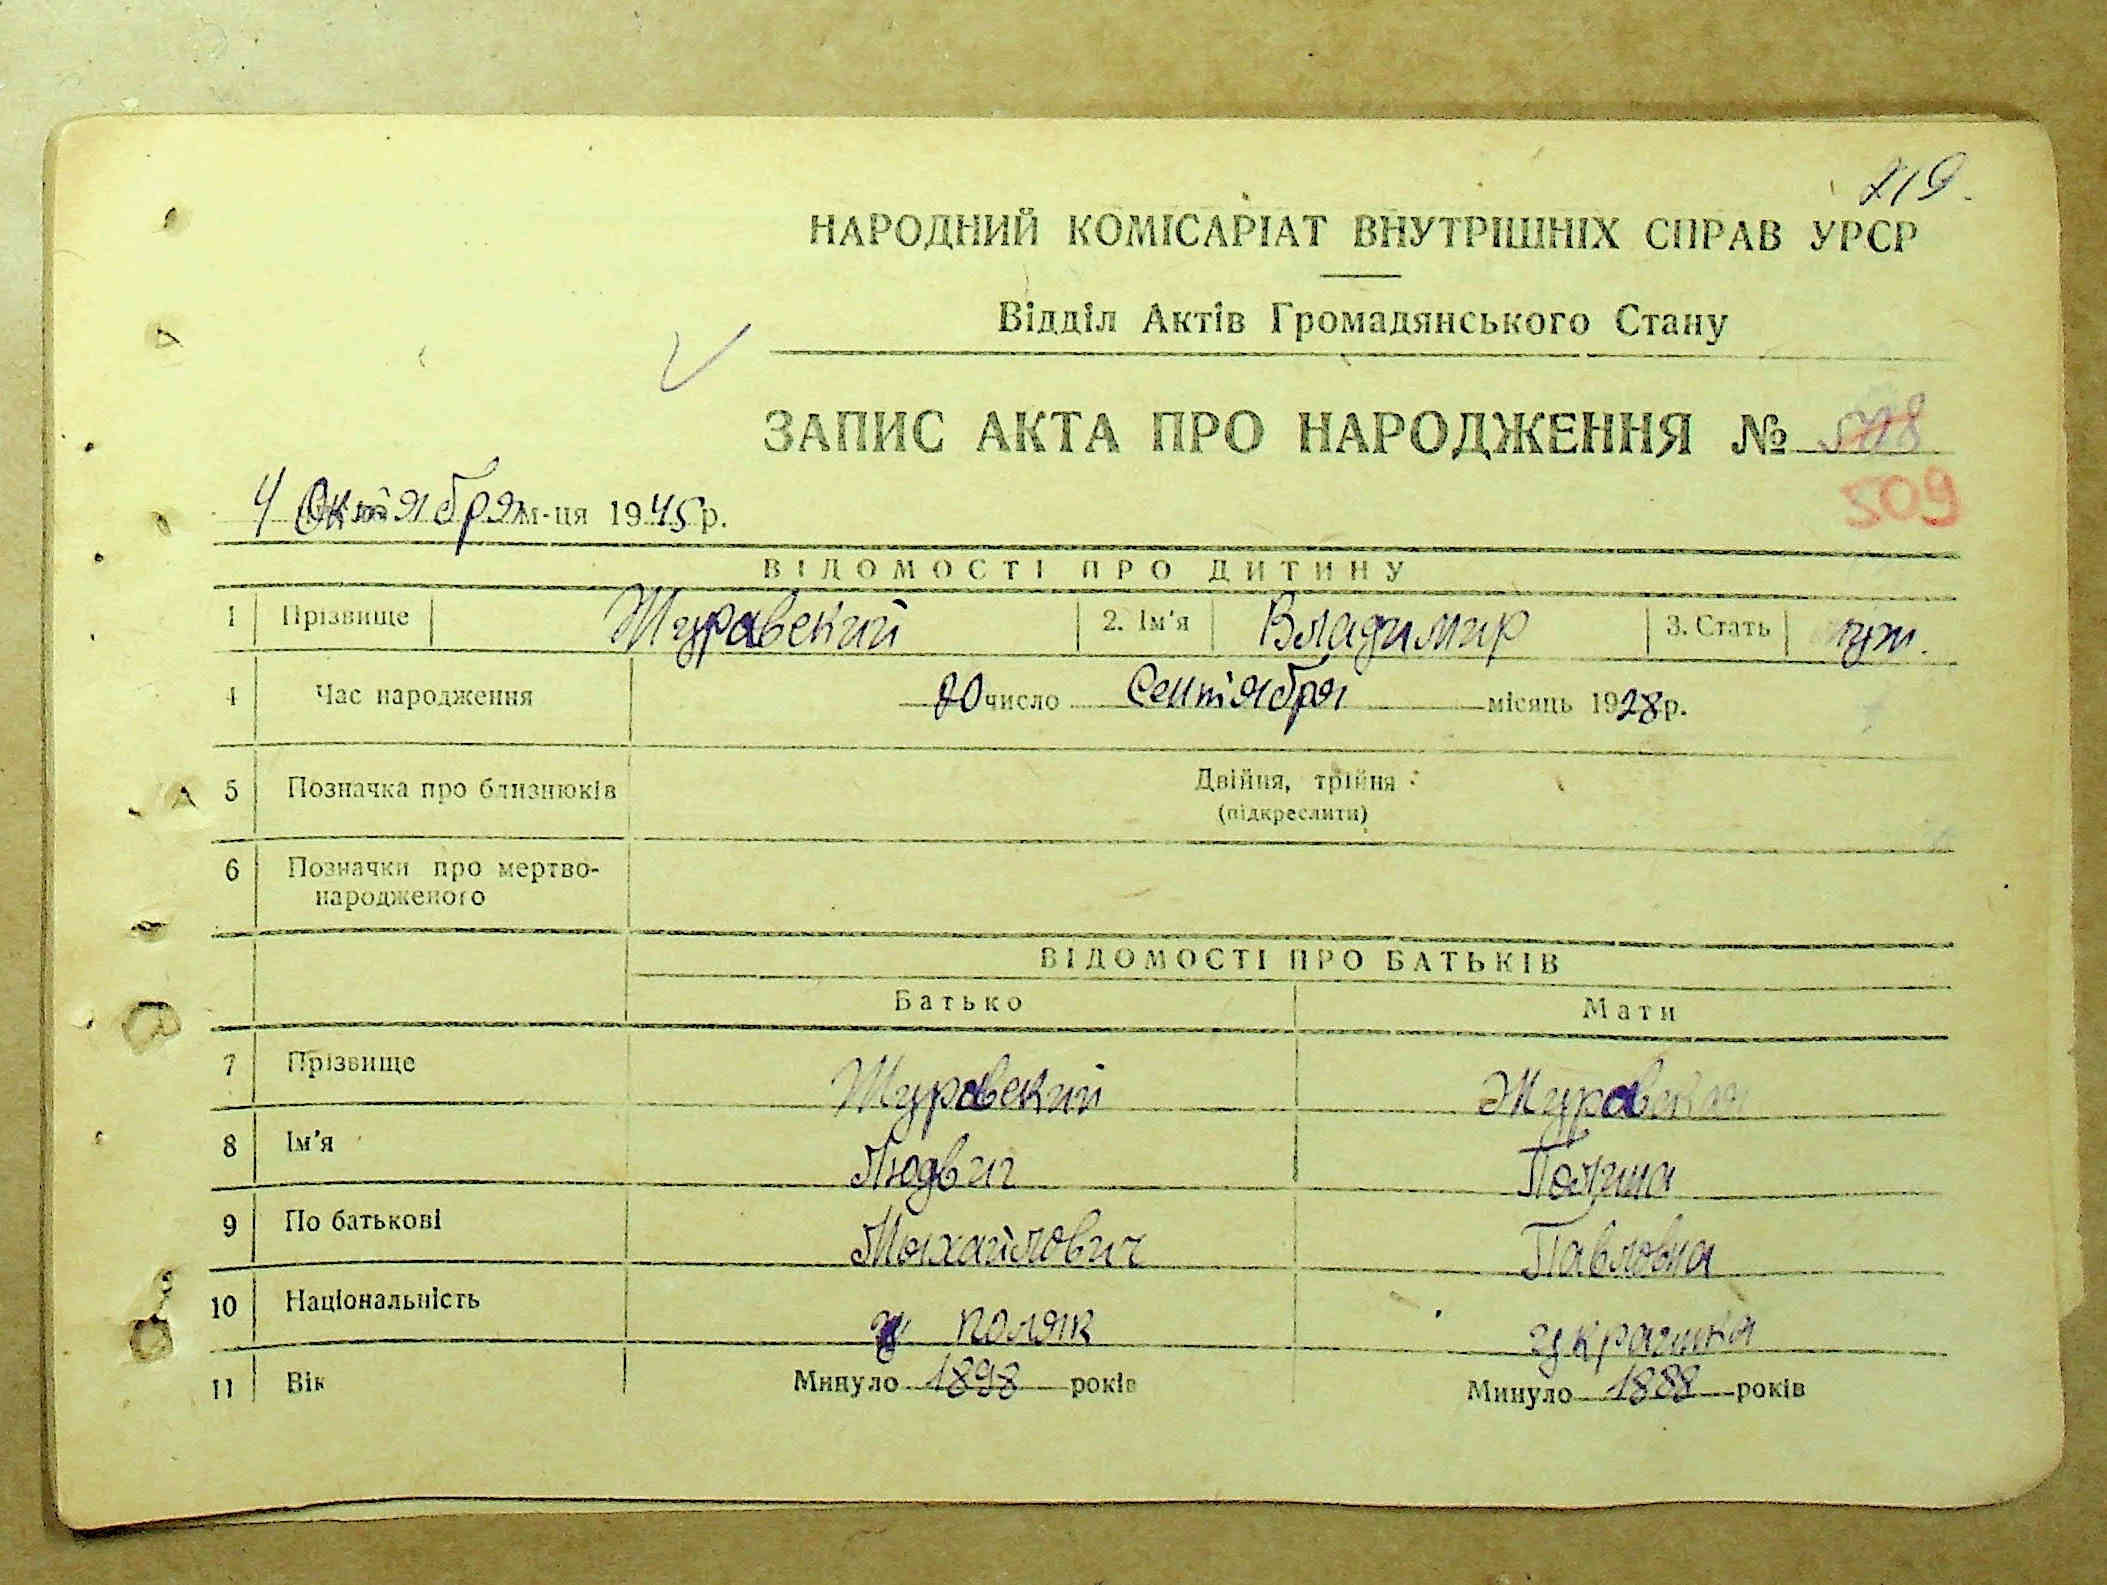 219.
НАРОДНИЙ КОМІСАРІАТ ВНУТРІШНІХ СПРАВ УРСР
Відділ Актів Громадянського Стану
ЗАПИС АКТА ПРО НАРОДЖЕННЯ №
509
4 Октября м-ця 1945 р.
ВІДОМОСТІ ПРО ДИТИНУ
1 Прізвище Журавский 2. Ім'я Владимир 3. Стать муж.
4 Час народження 20 число Сентября місяць 1928 р.
5 Позначка про близнюків Двійня, трійня
(підкреслити)
6 Позначки про мертво-
народженого
ВІДОМОСТІ ПРО БАТЬКІВ
Батько Мати
7 Прізвище Журавский Журавская
8 Ім'я Людвиг Полина
9 По батькові Михайлович Павловна
10 Національність поляк украинка
11 Вік Минуло 1898 років Минуло 1888 років